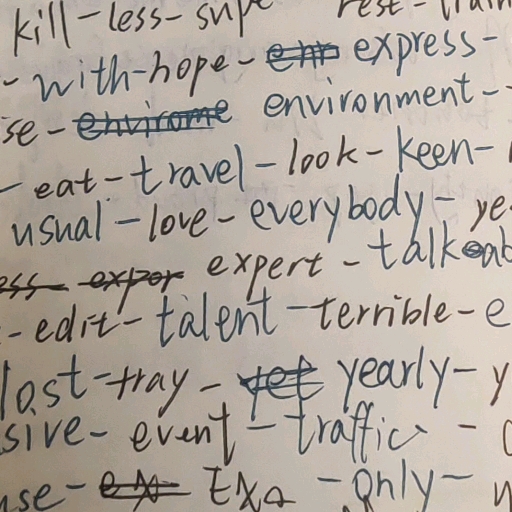 kill - less - sup
rest - train
- with - hope - express -
se - environment -
- eat - travel - look - keen -
usual - love - everybody - ye
expert - talk
- edit - talent - terrible - e
lost - tray - yearly - y
sive - event - traffic -
use - Exa - only -